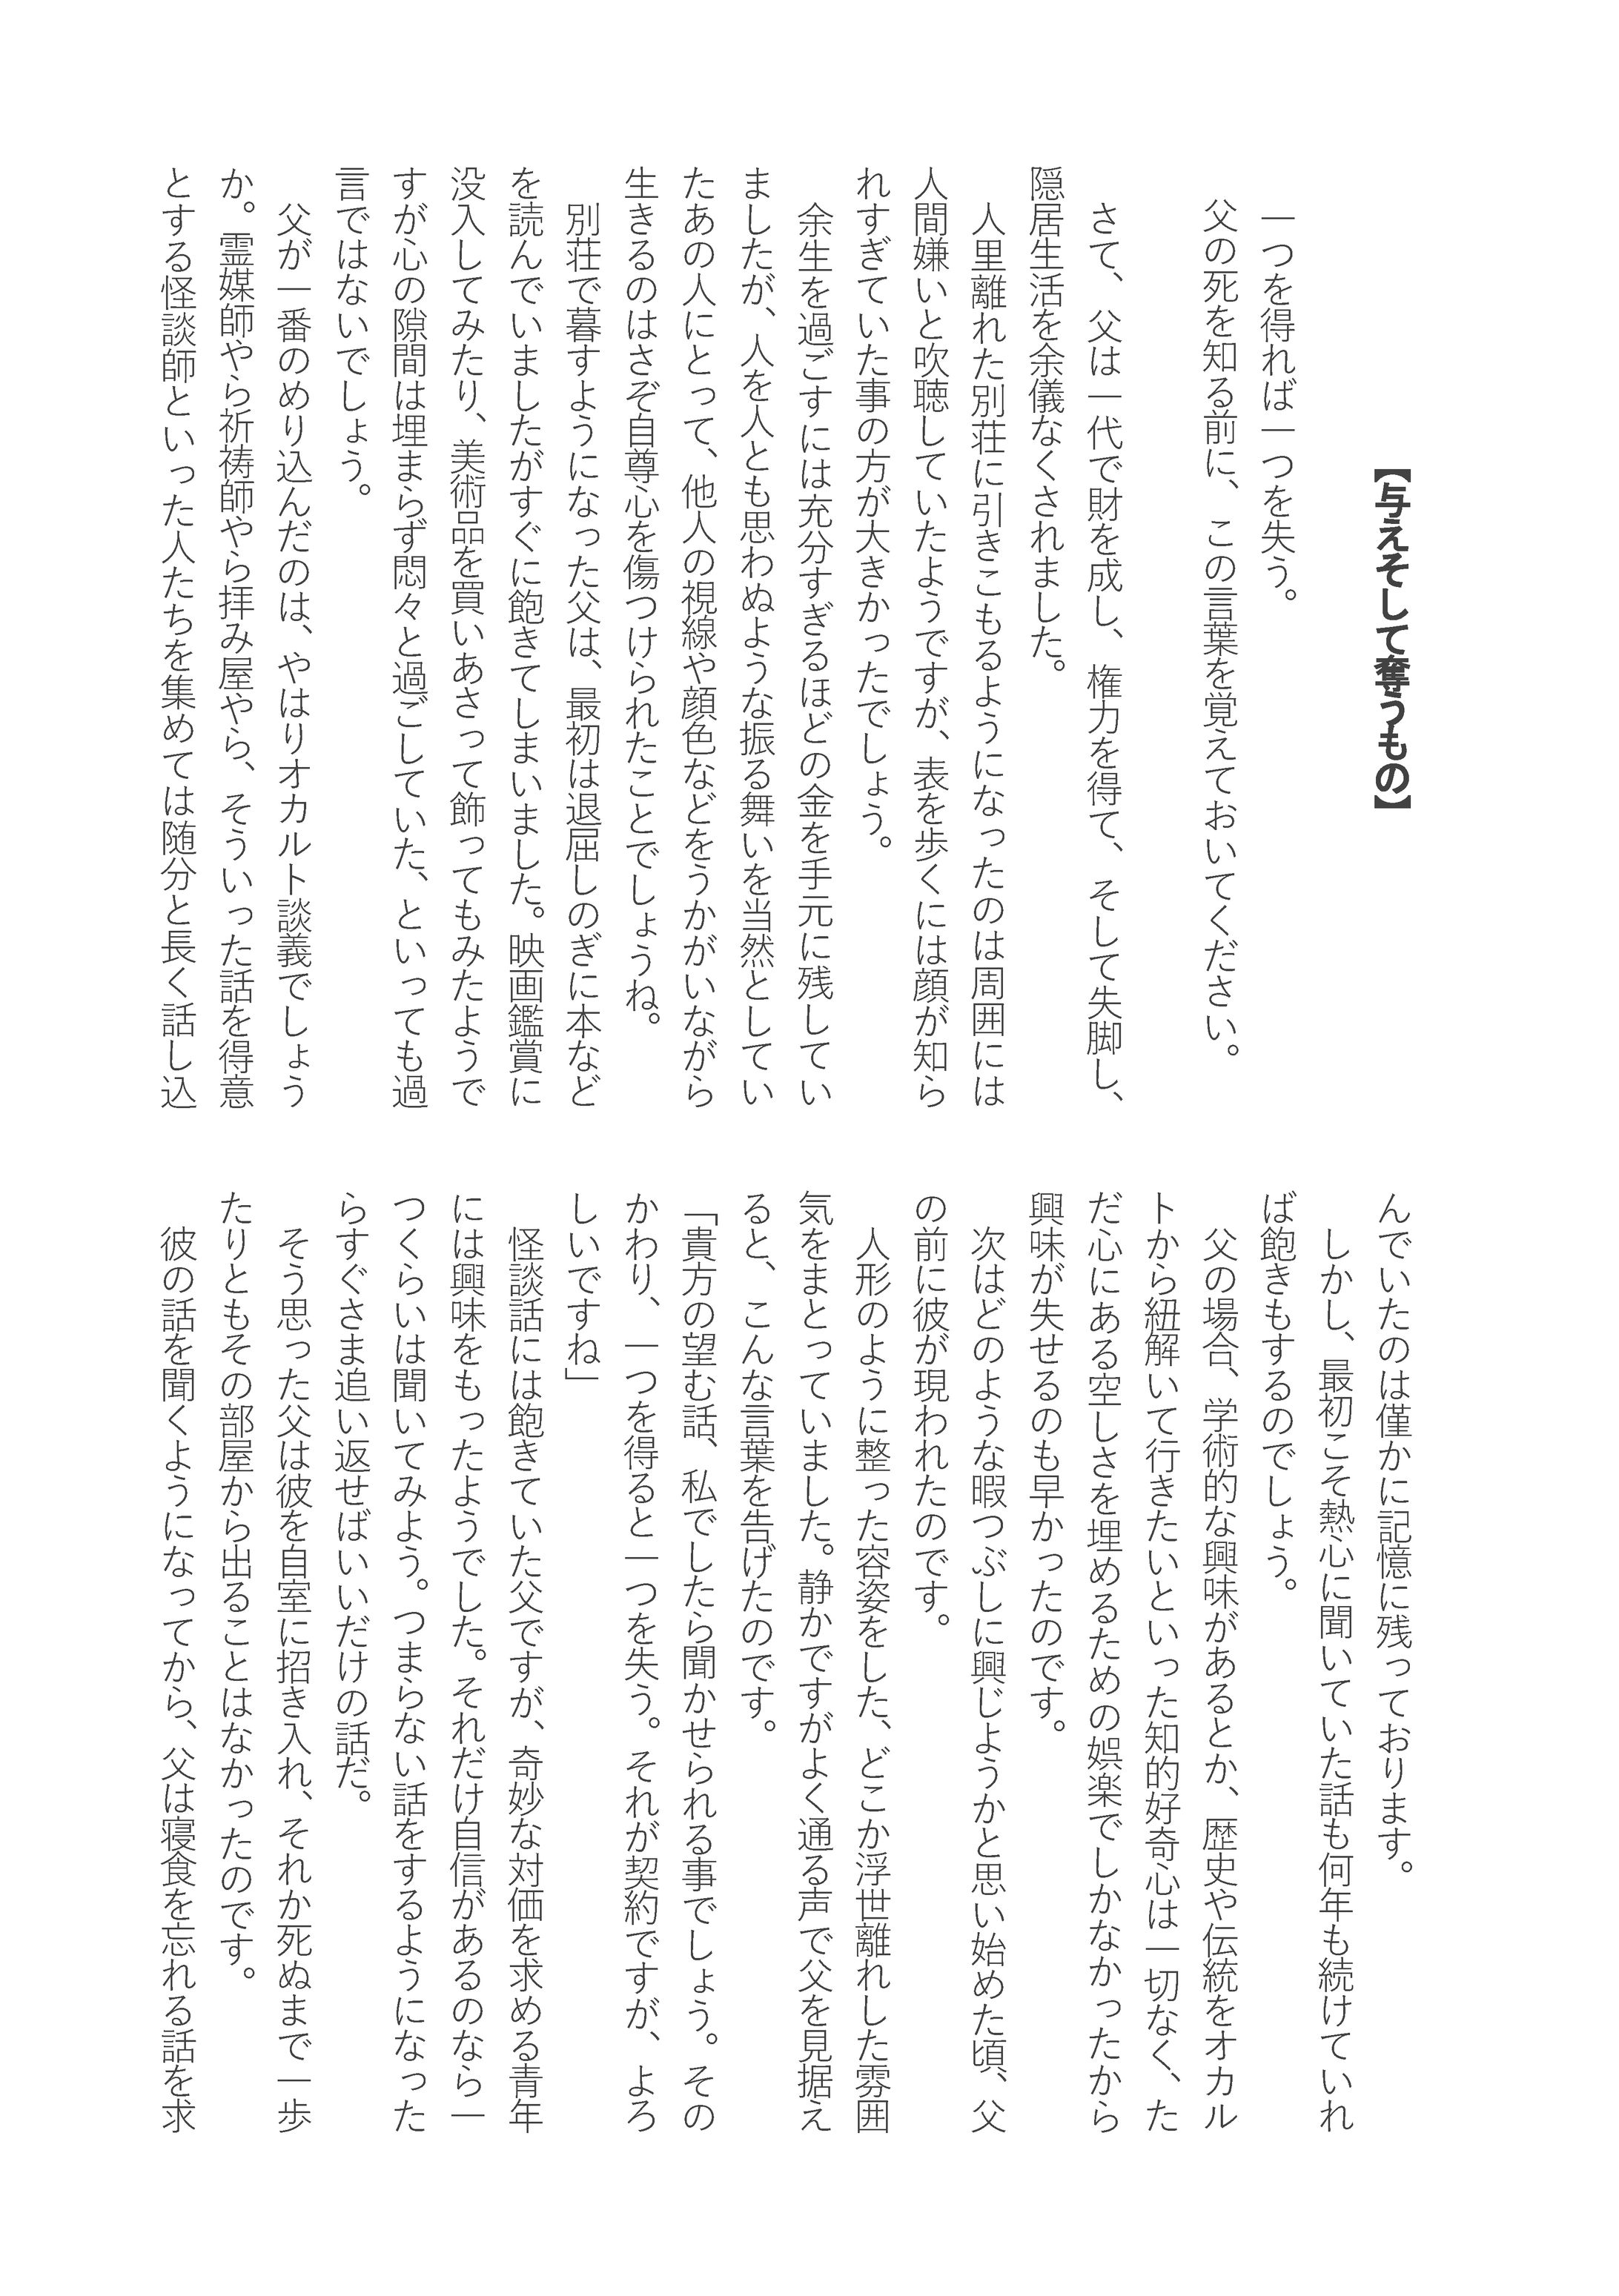 【与えそして奪うもの】
一つを得れば一つを失う。
父の死を知る前に、この言葉を覚えておいてください。
さて、父は一代で財を成し、権力を得て、そして失脚し、
隠居生活を余儀なくされました。
人里離れた別荘に引きこもるようになったのは周囲には
人間嫌いと吹聴していたようですが、表を歩くには顔が知ら
れすぎていた事の方が大きかったでしょう。
余生を過ごすには充分すぎるほどの金を手元に残してい
ましたが、人を人とも思わぬような振る舞いを当然としてい
たあの人にとって、他人の視線や顔色などをうかがいながら
生きるのはさぞ自尊心を傷つけられたことでしょうね。
別荘で暮すようになった父は、最初は退屈しのぎに本など
を読んでいましたがすぐに飽きてしまいました。映画鑑賞に
没入してみたり、美術品を買いあさって飾ってもみたようで
すが心の隙間は埋まらず悶々と過ごしていた、といっても過
言ではないでしょう。
父が一番のめり込んだのは、やはりオカルト談義でしょう
か。霊媒師やら祈祷師やら拝み屋やら、そういった話を得意
とする怪談師といった人たちを集めては随分と長く話し込
んでいたのは僅かに記憶に残っております。
しかし、最初こそ熱心に聞いていた話も何年も続けていれ
ば飽きもするのでしょう。
父の場合、学術的な興味があるとか、歴史や伝統をオカル
トから紐解いて行きたいといった知的好奇心は一切なく、た
だ心にある空しさを埋めるための娯楽でしかなかったから
興味が失せるのも早かったのです。
次はどのような暇つぶしに興じようかと思い始めた頃、父
の前に彼が現われたのです。
人形のように整った容姿をした、どこか浮世離れした雰囲
気をまとっていました。静かですがよく通る声で父を見据え
ると、こんな言葉を告げたのです。
「貴方の望む話、私でしたら聞かせられる事でしょう。その
かわり、一つを得ると一つを失う。それが契約ですが、よろ
しいですね」
怪談話には飽きていた父ですが、奇妙な対価を求める青年
には興味をもったようでした。それだけ自信があるのなら一
つくらいは聞いてみよう。つまらない話をするようになった
らすぐさま追い返せばいいだけの話だ。
そう思った父は彼を自室に招き入れ、それか死ぬまで一歩
たりともその部屋から出ることはなかったのです。
彼の話を聞くようになってから、父は寝食を忘れる話を求